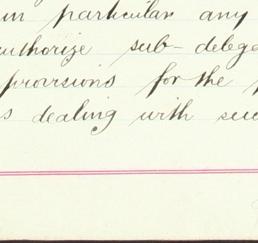 in particular any
authorize sub-delega
provisions for the
s dealing with suc